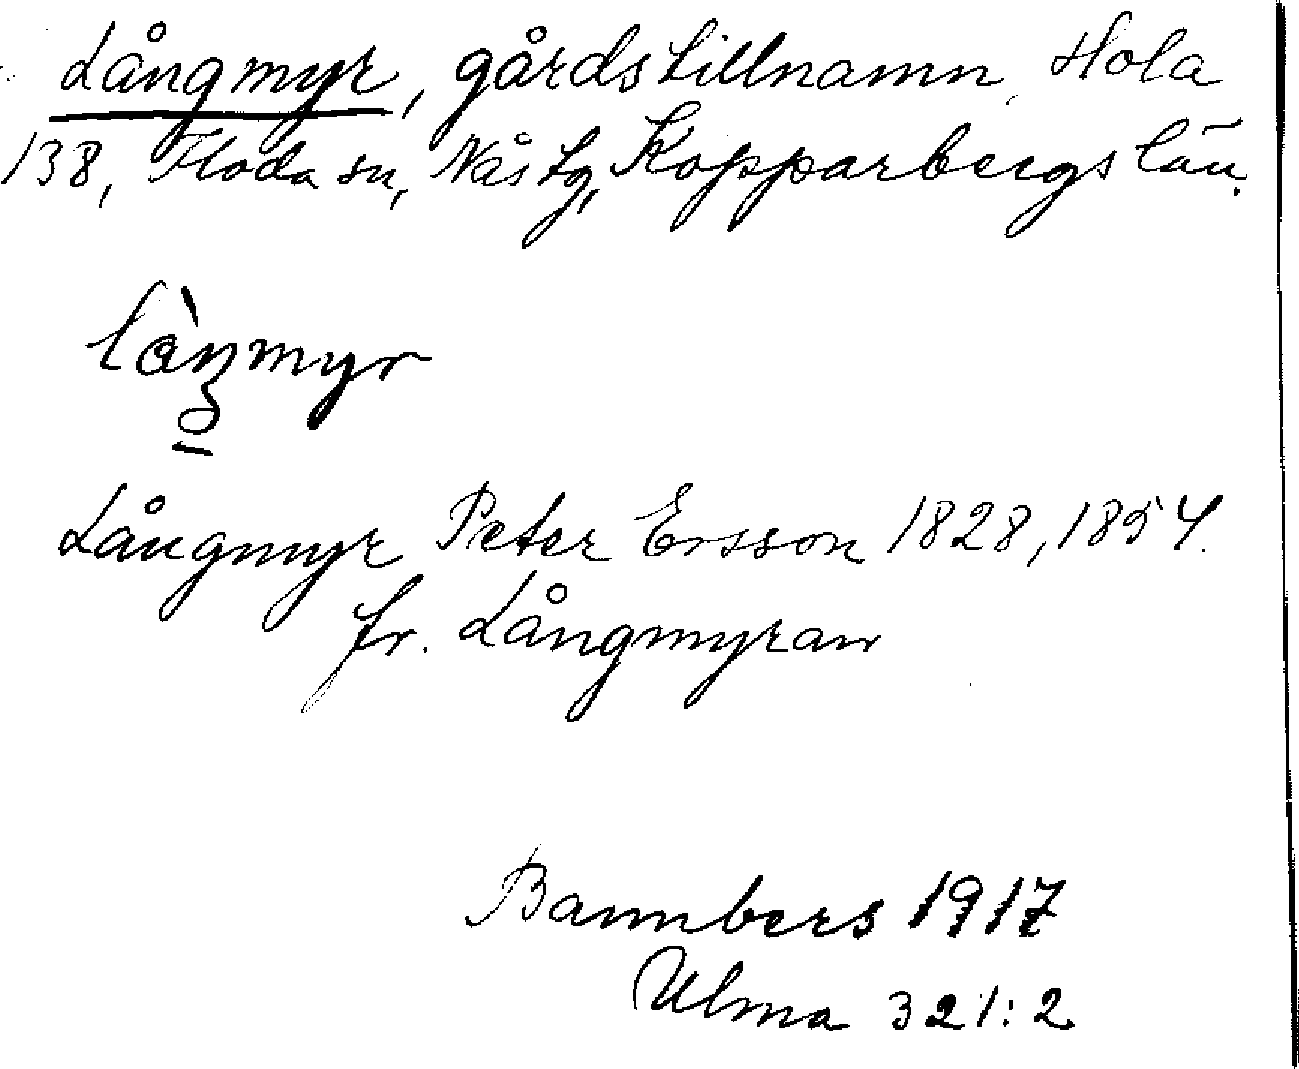 Långmyr, gårdstillnamn, Hola
138, Floda sn, Nås tg, Kopparbergs län.
Långmyr Peter Ersson 1828, 1854.
fr. Långmyran
Bannbers 1917
Ulma 321:2